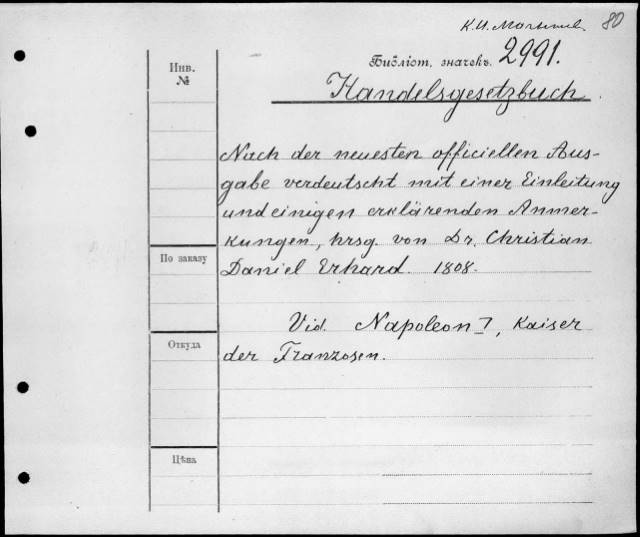 К.И. 80
Библіот. значекъ. 2991.
Инв.
№
Handelsgesetzbuch.
Nach der neuesten officiellen Aus-
gabe verdeutscht mit einer Einleitung
und einigen erklärenden Anmer-
kungen, hrsg. von Dr. Christian
По заказу
Daniel Erhard. 1808.
Vid. Napoleon I, Kaiser
Откуда
der Franzosen.
Цѣна